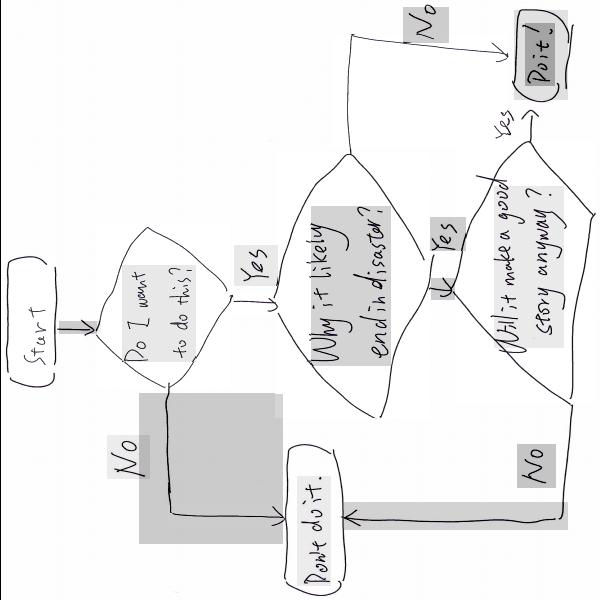 Start
Do I want
to do this?
No
Yes
Why it likely
end in disaster?
No
Yes
Will it make a good
story anyway?
Yes
No
Do it!
Don't do it.